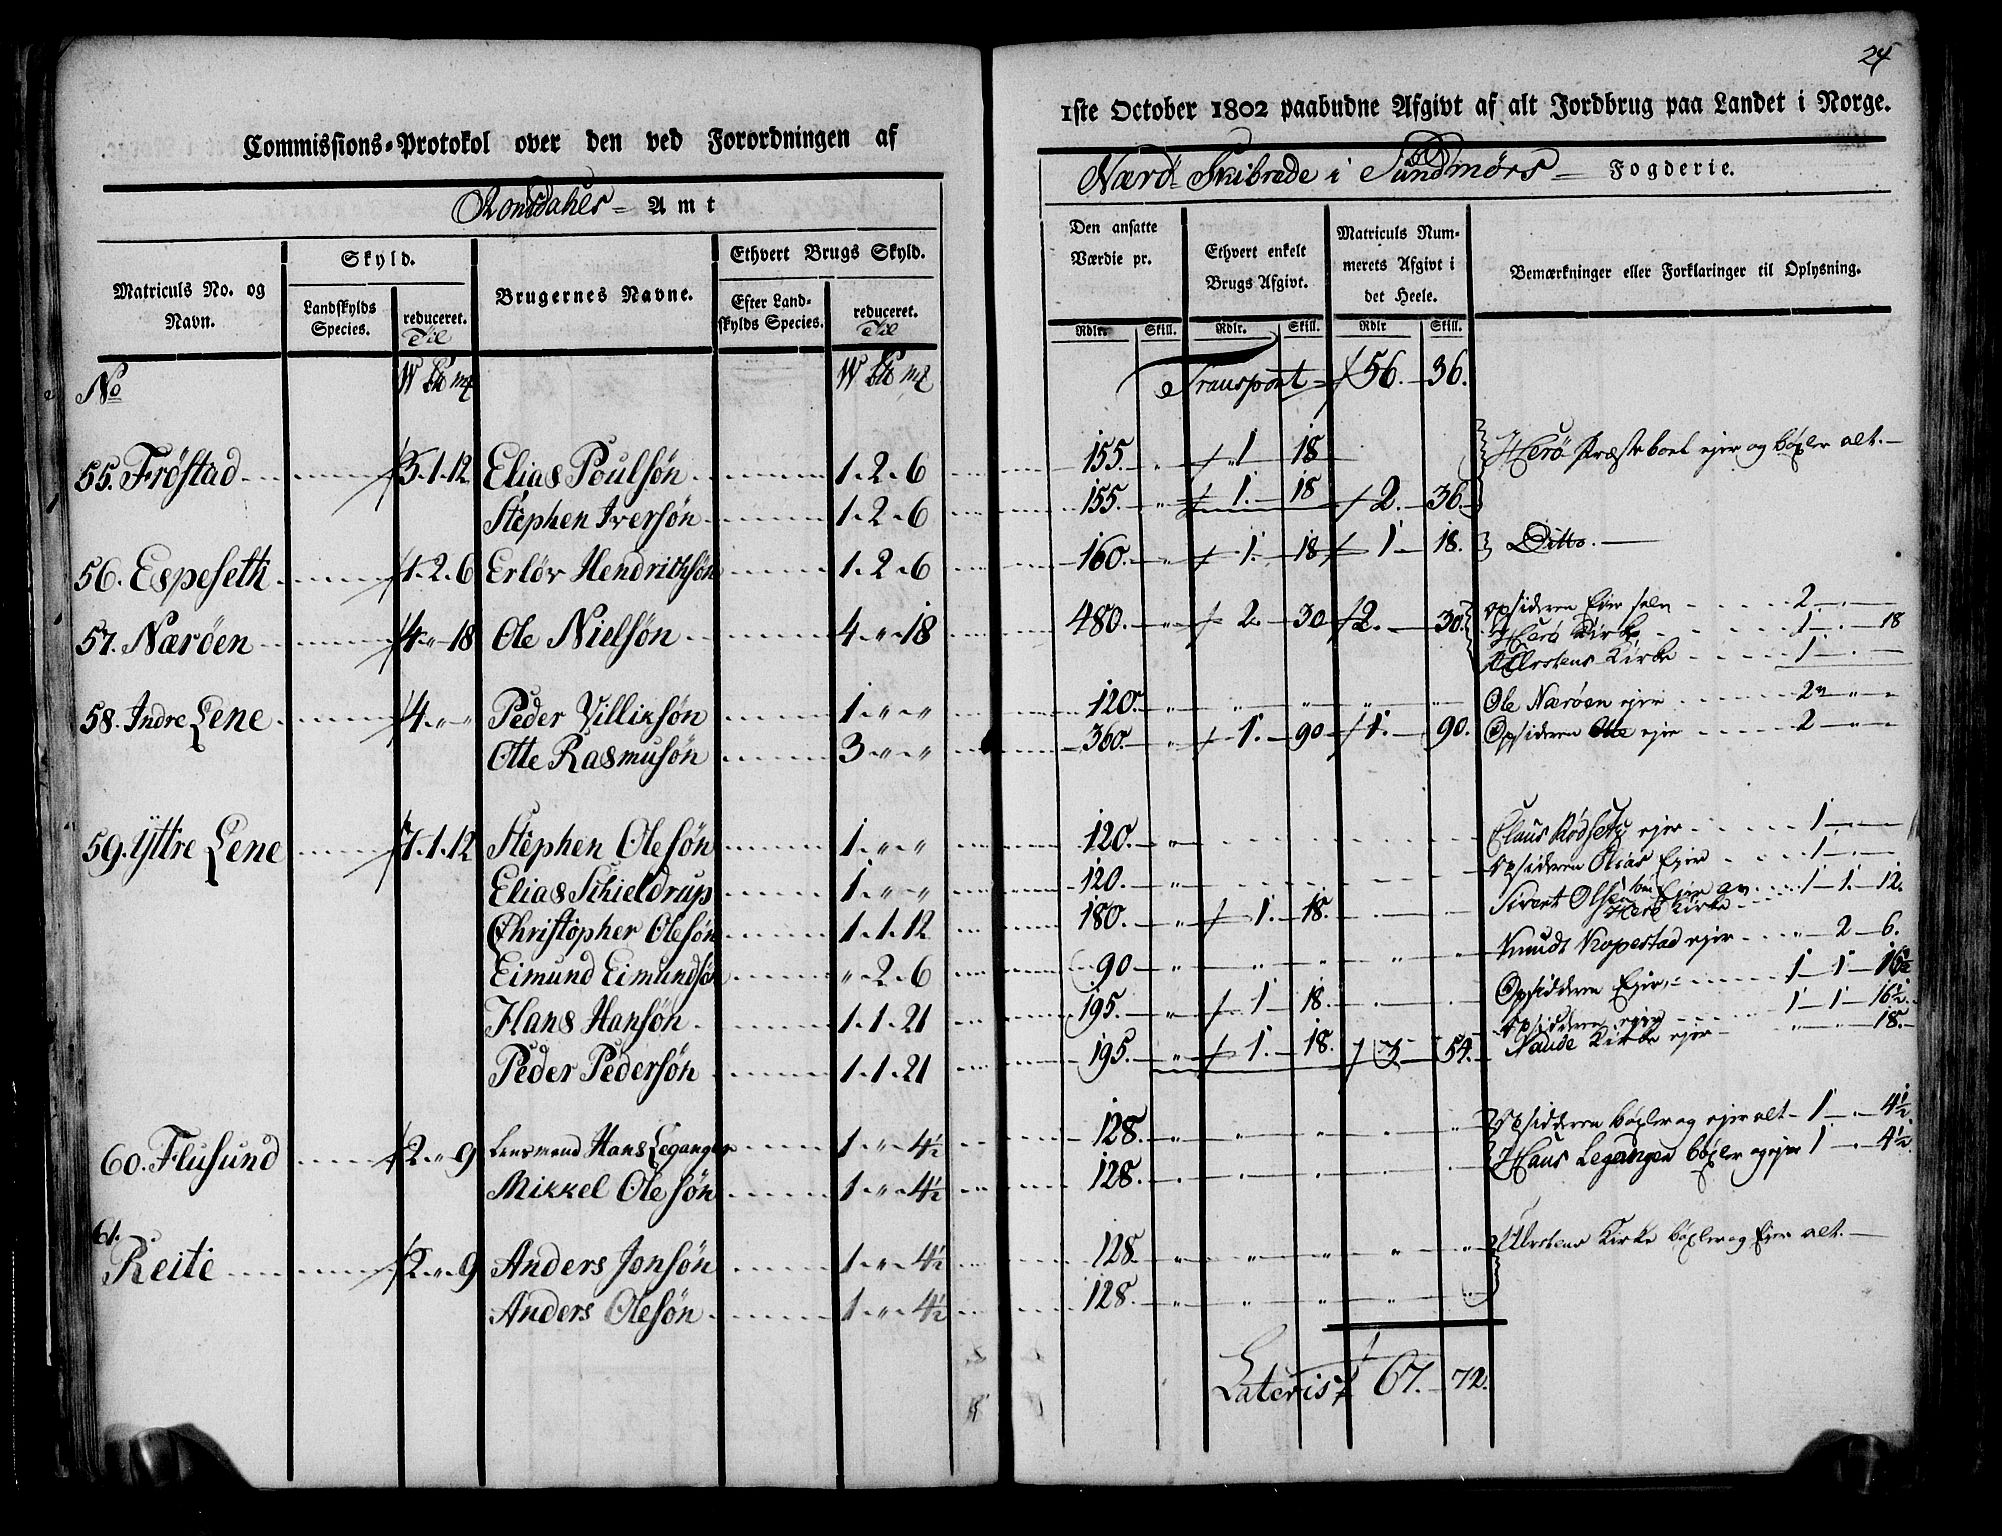 24
Commissions-Protokol over den ved Forordningen af
1ste October 1802 paabudne Afgivt af alt Jordbrug paa Landet i Norge.
Romsdahls Amt
Nærö Skibrede i Sundmørs Fogderie.
Matriculs No. og Navn.
Skyld.
Landskylds Species.
reduceret. Til
Brugernes Navne.
Ethvert Brugs Skyld.
Efter Landskylds Species.
reduceret. Til
Den ansatte Værdie pr.
Rdlr. Skill.
Ethvert enkelt Brugs Afgivt.
Rdlr. Skill.
Matriculs Nummerets Afgivt i det Heele.
Rdlr Skill.
Bemærkninger eller Forklaringer til Oplysning.
No W ℔ mk W ℔ mk Transport 56. 36.
55. Fröstad 3. 1. 12 Elias Poulsön 1. 2. 6 155. " 1 18 Herö Præsteboel ejer og böxler alt.
Stephen Iversön 1. 2. 6 155. " 1. 18 2. 36.
56. Espeseth 1. 2. 6 Erlöv Hendrichsön 1. 2. 6 160. " 1. 18 1 18. Ditto.
57. Næröen 4 " 18 Ole Nielsön 4 " 18 480. " 2. 30 2. 30. Opsideren Ejer selv 2
Herö Kirke 1. 18
Ulstens Kirke 1
58. Indre Lene 4 " " Peder Villiksön 1 " " 120. " " " " " Ole Næröen ejer 2 " "
Otte Rasmusön 3 " " 360. " 1. 90 1. 90. Opsideren Otte ejer 2 " "
59. Yttre Lene 7. 1. 12 Stephen Olesön 1 " " 120. " Claus Rödsety ejer 1
Elias Schieldrup 1 " " 120. " Opsideren Elias Ejer 1
Christopher Olesön 1. 1. 12 180. " 1. 18. Sivert Olsen Ejer 1 1. 12.
Herö Kirke
Eimund Eimundsön " 2. 6 90 " " " " " Knudt Kopestad ejer " 2 6.
Hans Hansön 1. 1. 21 195. " 1 18. Opsidderen Ejer 1 1 16½
Opsidderen ejer 1 1 16½
Peder Pedersön 1. 1. 21 195. " 1. 18. 3 54. Kirke ejer " " 18.
60. Flusund 2 " 9 Lensmand Hans Leganger 1 " 4½ 128. " " " " " Opsidderen böxler og ejer alt 1 4½
Mikkel Olesön 1 " 4½ 128. Hans Leganger böxler og ejer 1 4½
61. Reite 2 " 9 Anders Jonsön 1 " 4½ 128 " " " " " Ulstens Kirke böxler og Ejer alt.
Anders Olesön 1 " 4½ 128. " " " " "
Lateris 67. 72.